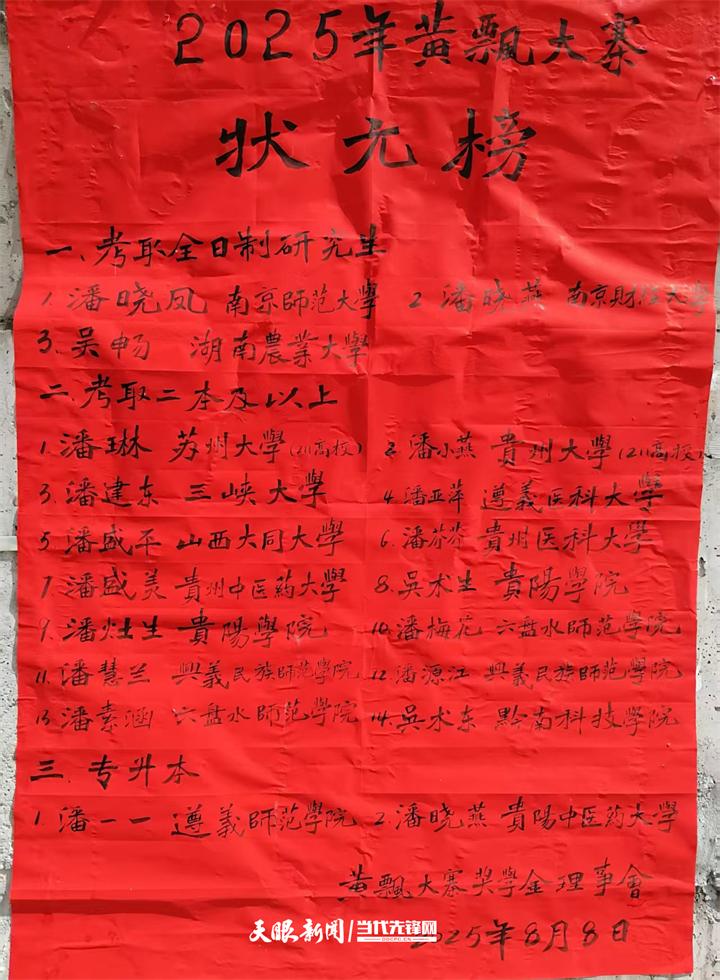 2025年黄飄大寨
状元榜
一、考取全日制研究生
1.潘晓凤 南京師范大學 2 潘晓燕 南京财经大學
3.吴畅 湖南農業大學
二.考取二本及以上
1.潘琳 苏州大學(211高校) 2.潘小燕 貴州大學(211高校)
3.潘建东 三峡大學 4.潘亚萍 遵義医科大學
5.潘盛平 山西大同大學 6.潘芬芬 貴州医科大學
7.潘盛美 貴州中医药大學 8.吳术生 貴陽學院
9.潘灶生 貴陽學院 10.潘梅花 六盘水師范學院
11.潘慧兰 興義民族師范學院 12 潘源江 興義民族師范學院
13.潘素涵 六盘水師范學院 14.吳术东 黔南科技學院
三.专升本
1.潘一一 遵義師范學院 2.潘晓燕 貴陽中医药大學
黄飄大寨奖學金理事會
2025年8月8日
天眼新闻 当代先锋网
DDCPC.CN